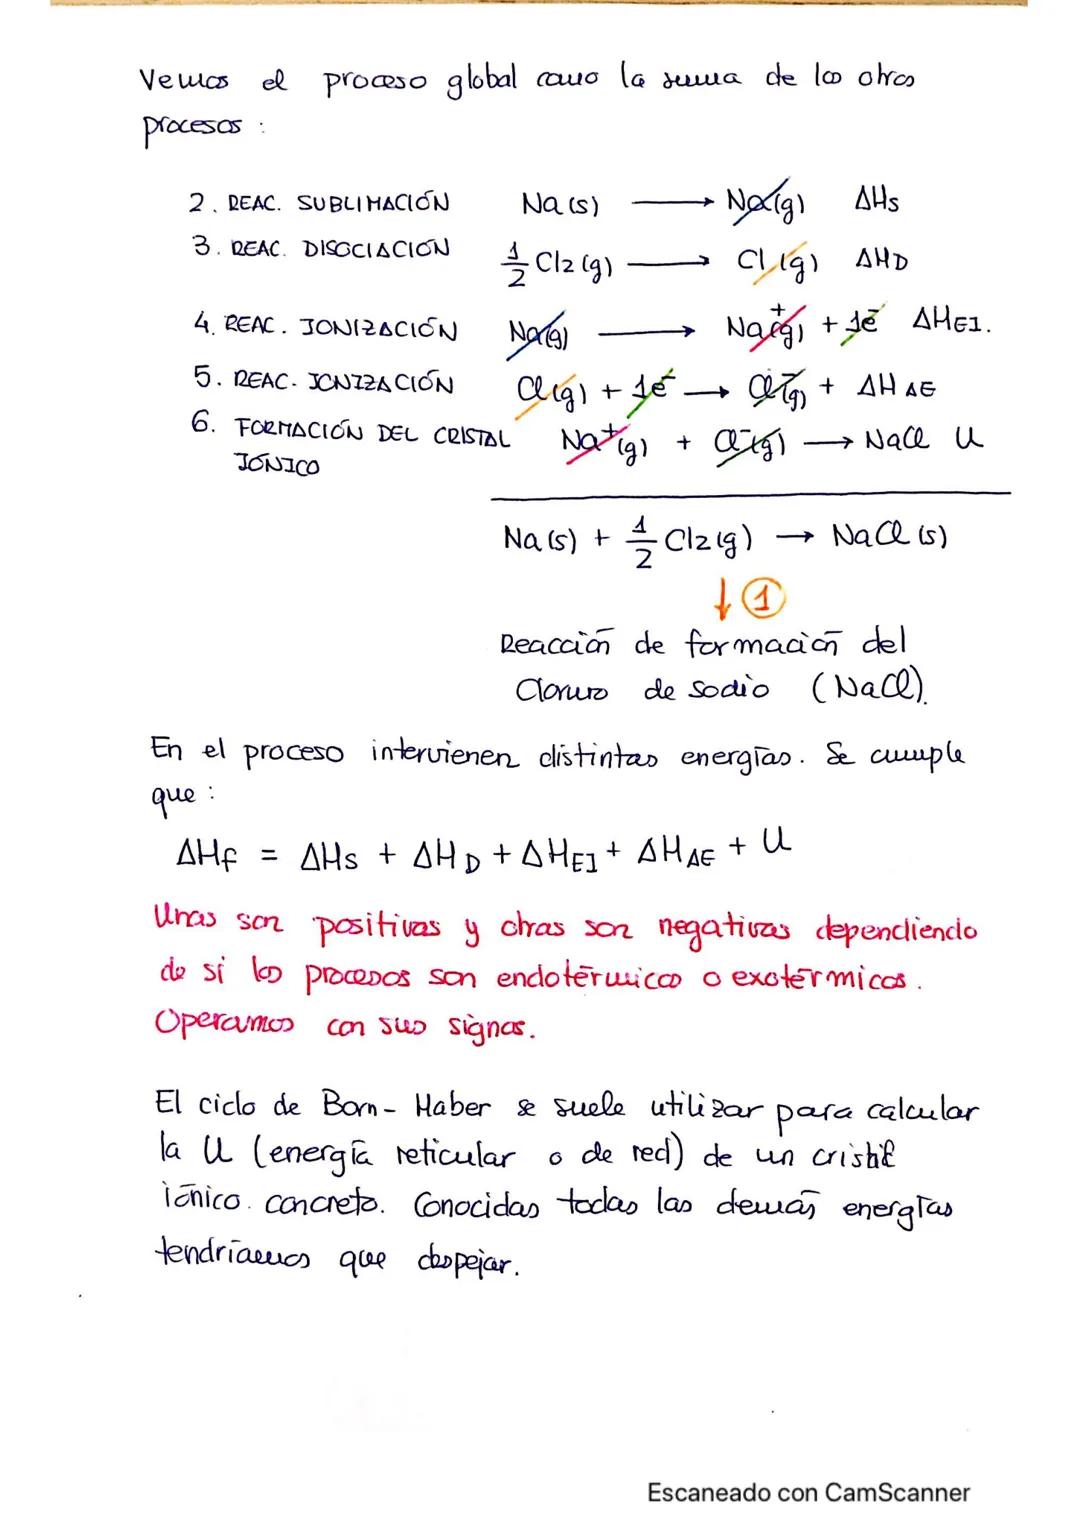 Vemos el proceso global como la suma de los otros
procesos :
2. REAC. SUBLIMACIÓN Na (s) → Na(g) ΔHs
3. REAC. DISOCIACIÓN 1/2 Cl2 (g) → Cl (g) ΔHD
4. REAC. IONIZACIÓN Na(g) → Na+(g) + 1e- ΔHEI.
5. REAC. IONIZACIÓN Cl(g) + 1e- → Cl-(g) + ΔH AE
6. FORMACIÓN DEL CRISTAL Na+(g) + Cl-(g) → NaCl U
IÓNICO
Na (s) + 1/2 Cl2 (g) → NaCl (s)
↓ 1
Reacción de formación del
Cloruro de sodio (NaCl).
En el proceso intervienen distintas energías. Se cumple
que :
ΔHf = ΔHs + ΔHD + ΔHEI + ΔHAE + U
Unas son positivas y otras son negativas dependiendo
de si los procesos son endotérmicos o exotérmicos.
Operamos con sus signos.
El ciclo de Born - Haber se suele utilizar para calcular
la U (energía reticular o de red) de un cristal
iónico concreto. Conocidas todas las demás energías
tendríamos que despejar.
Escaneado con CamScanner